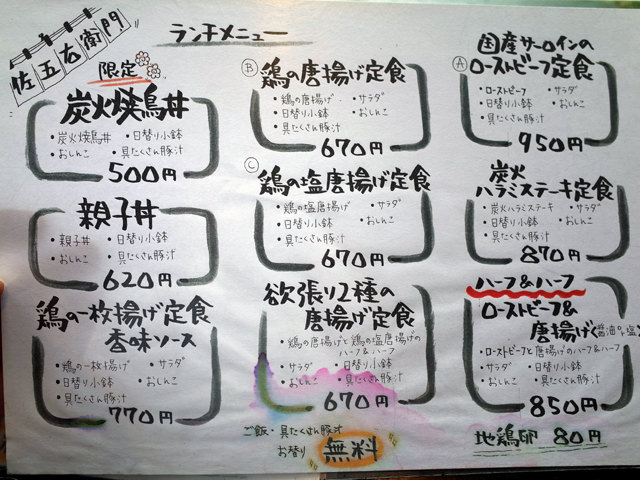 佐五右衛門
ランチメニュー
限定
炭火焼鳥丼
・炭火焼鳥丼 ・日替り小鉢
・おしんこ ・具たくさん豚汁
500円
親子丼
・親子丼 ・日替り小鉢
・おしんこ ・具たくさん豚汁
620円
鶏の一枚揚げ定食
香味ソース
・鶏の一枚揚げ ・サラダ
・日替り小鉢 ・おしんこ
・具たくさん豚汁
770円
Ⓑ
鶏の唐揚げ定食
・鶏の唐揚げ ・サラダ
・日替り小鉢 ・おしんこ
・具たくさん豚汁
670円
Ⓒ
鶏の塩唐揚げ定食
・鶏の塩唐揚げ ・サラダ
・日替り小鉢 ・おしんこ
・具たくさん豚汁
670円
欲張り2種の
唐揚げ定食
・鶏の唐揚げと鶏の塩唐揚げの
ハーフ&ハーフ
・サラダ ・日替り小鉢
・おしんこ ・具たくさん豚汁
670円
ご飯・具たくさん豚汁
お替り 無料
国産サーロインの
Ⓐ
ローストビーフ定食
・ローストビーフ ・サラダ
・日替り小鉢 ・おしんこ
・具たくさん豚汁
950円
炭火
ハラミステーキ定食
・炭火ハラミステーキ ・サラダ
・日替り小鉢 ・おしんこ
・具たくさん豚汁
870円
ハーフ&ハーフ
ローストビーフ&
唐揚げ(醤油or塩)
・ローストビーフと唐揚げのハーフ&ハーフ
・サラダ ・日替り小鉢
・おしんこ ・具たくさん豚汁
850円
地鶏卵 80円